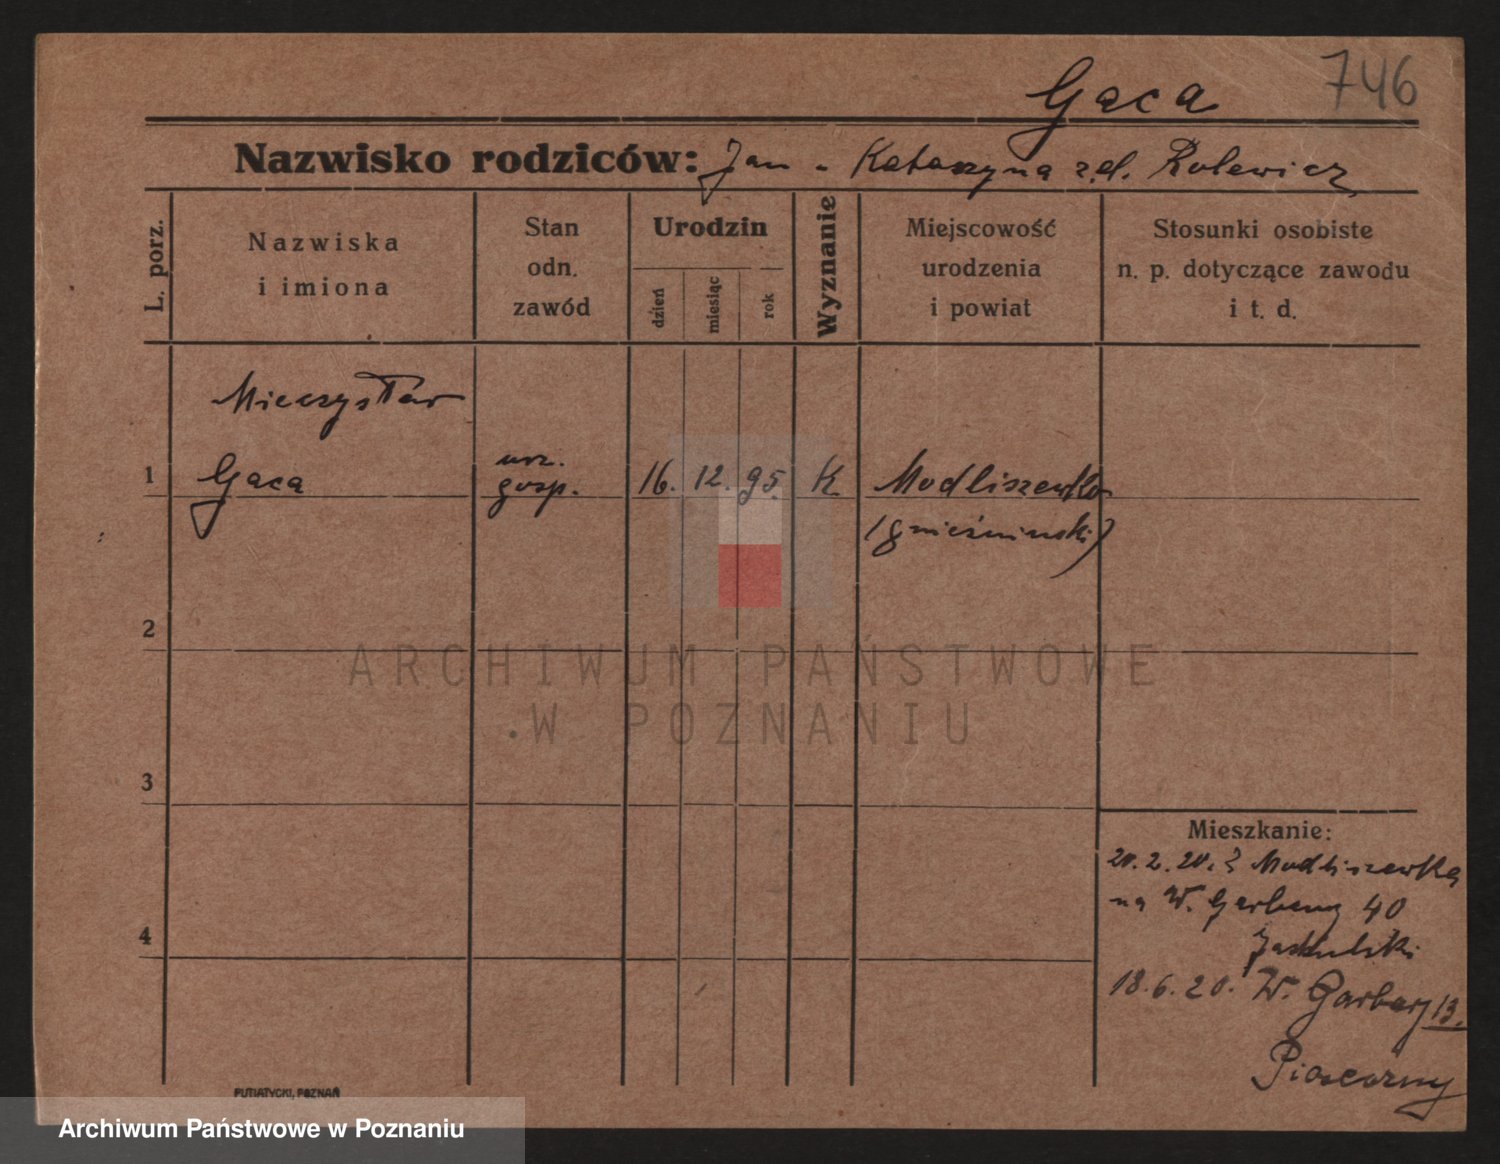 746
Gąca
Nazwisko rodziców: Jan - Katarzyna z d. Rolewicz
L. porz.
Nazwiska
i imiona
Stan
odn.
zawód
Urodzin
dzień
miesiąc
rok
Wyznanie
Miejscowość
urodzenia
i powiat
Stosunki osobiste
n. p. dotyczące zawodu
i t. d.
Mieczysław
1 Gąca
urz.
gosp.
16. 12. 95. K.
Modliszewko
(gnieźnieński)
2
3
4
Mieszkanie:
20.2.20. z Modliszewka
na W. Garbary 40
18.6.20. W. Garbary 13.
PUTIATYCKI, POZNAŃ
ARCHIWUM PAŃSTWOWE
W POZNANIU
Archiwum Państwowe w Poznaniu